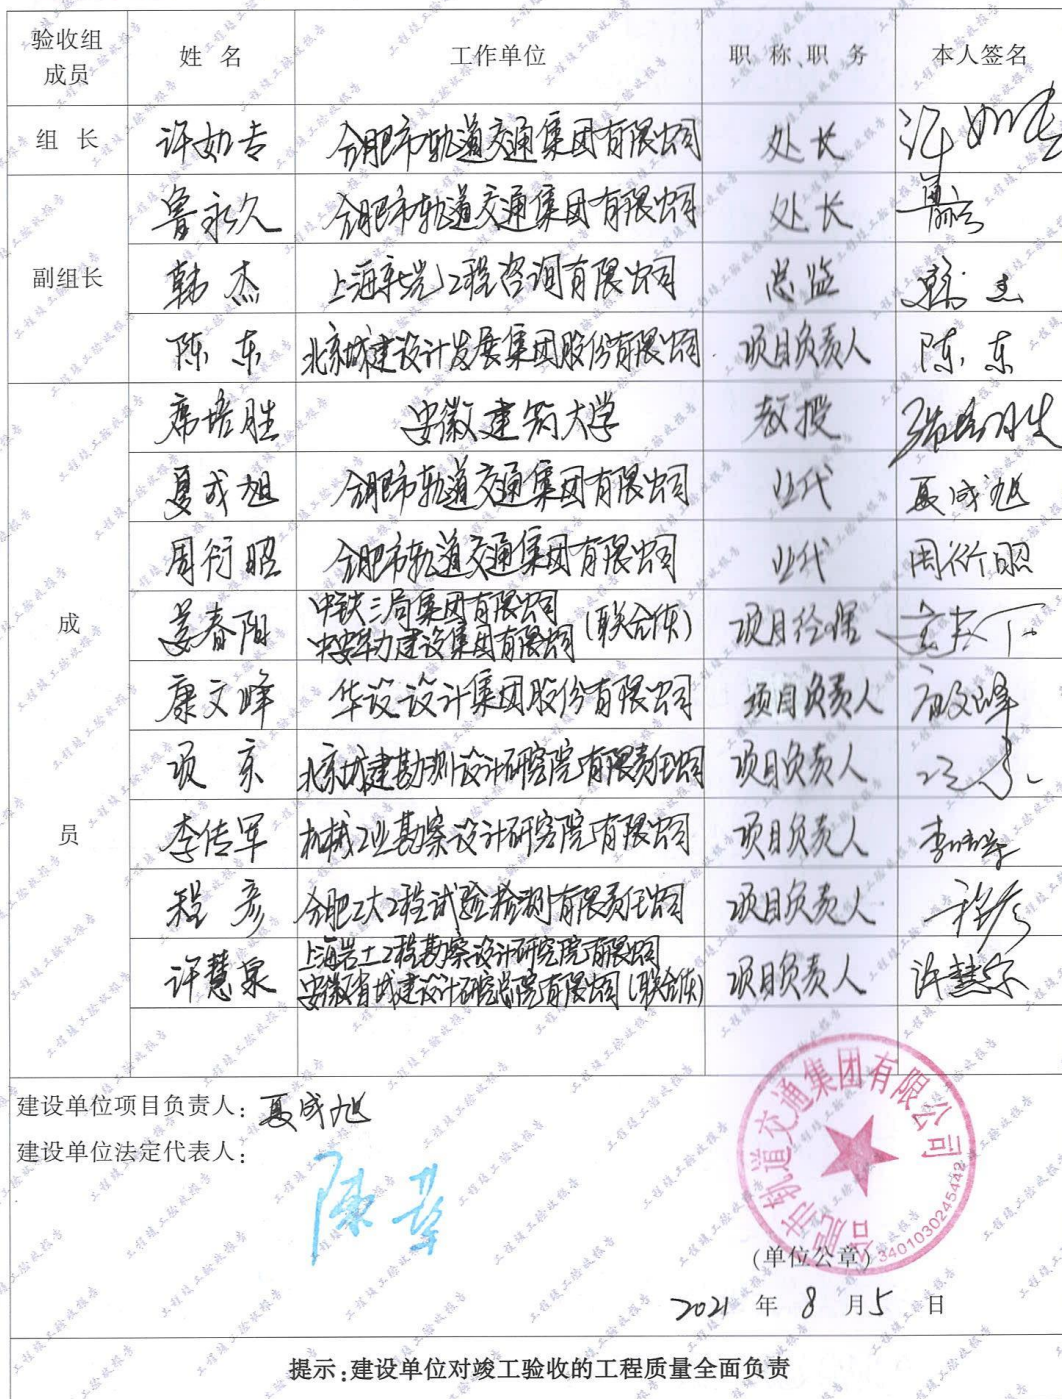 验收组成员 姓 名 工作单位 职 称、职 务 本人签名
组 长 许如专 合肥市轨道交通集团有限公司 处长
副组长 鲁永久 合肥市轨道交通集团有限公司 处长
韩杰 上海 工程咨询有限公司 总监 韩杰
陈东 北京城建设计发展集团股份有限公司 项目负责人 陈东
成员 席培胜 安徽建筑大学 教授 席培胜
夏成旭 合肥市轨道交通集团有限公司 业代 夏成旭
周衍昭 合肥市轨道交通集团有限公司 业代 周衍昭
姜春阳 中铁三局集团有限公司
中安华力建设集团有限公司 (联合体) 项目经理
康文峰 华设设计集团股份有限公司 项目负责人 康文峰
项京 北京城建勘测设计研究院有限责任公司 项目负责人
李传军 机械工业勘察设计研究院有限公司 项目负责人 李传军
程彦 合肥工大工程试验检测有限责任公司 项目负责人 程彦
许慧泉 上海岩土工程勘察设计研究院有限公司
安徽省城建设计研究总院有限公司(联合体) 项目负责人
建设单位项目负责人：夏成旭
建设单位法定代表人：
合肥市轨道交通集团有限公司
3401030245442
(单位公章)
2021 年 8 月 5 日
提示：建设单位对竣工验收的工程质量全面负责
工程竣工验收报告